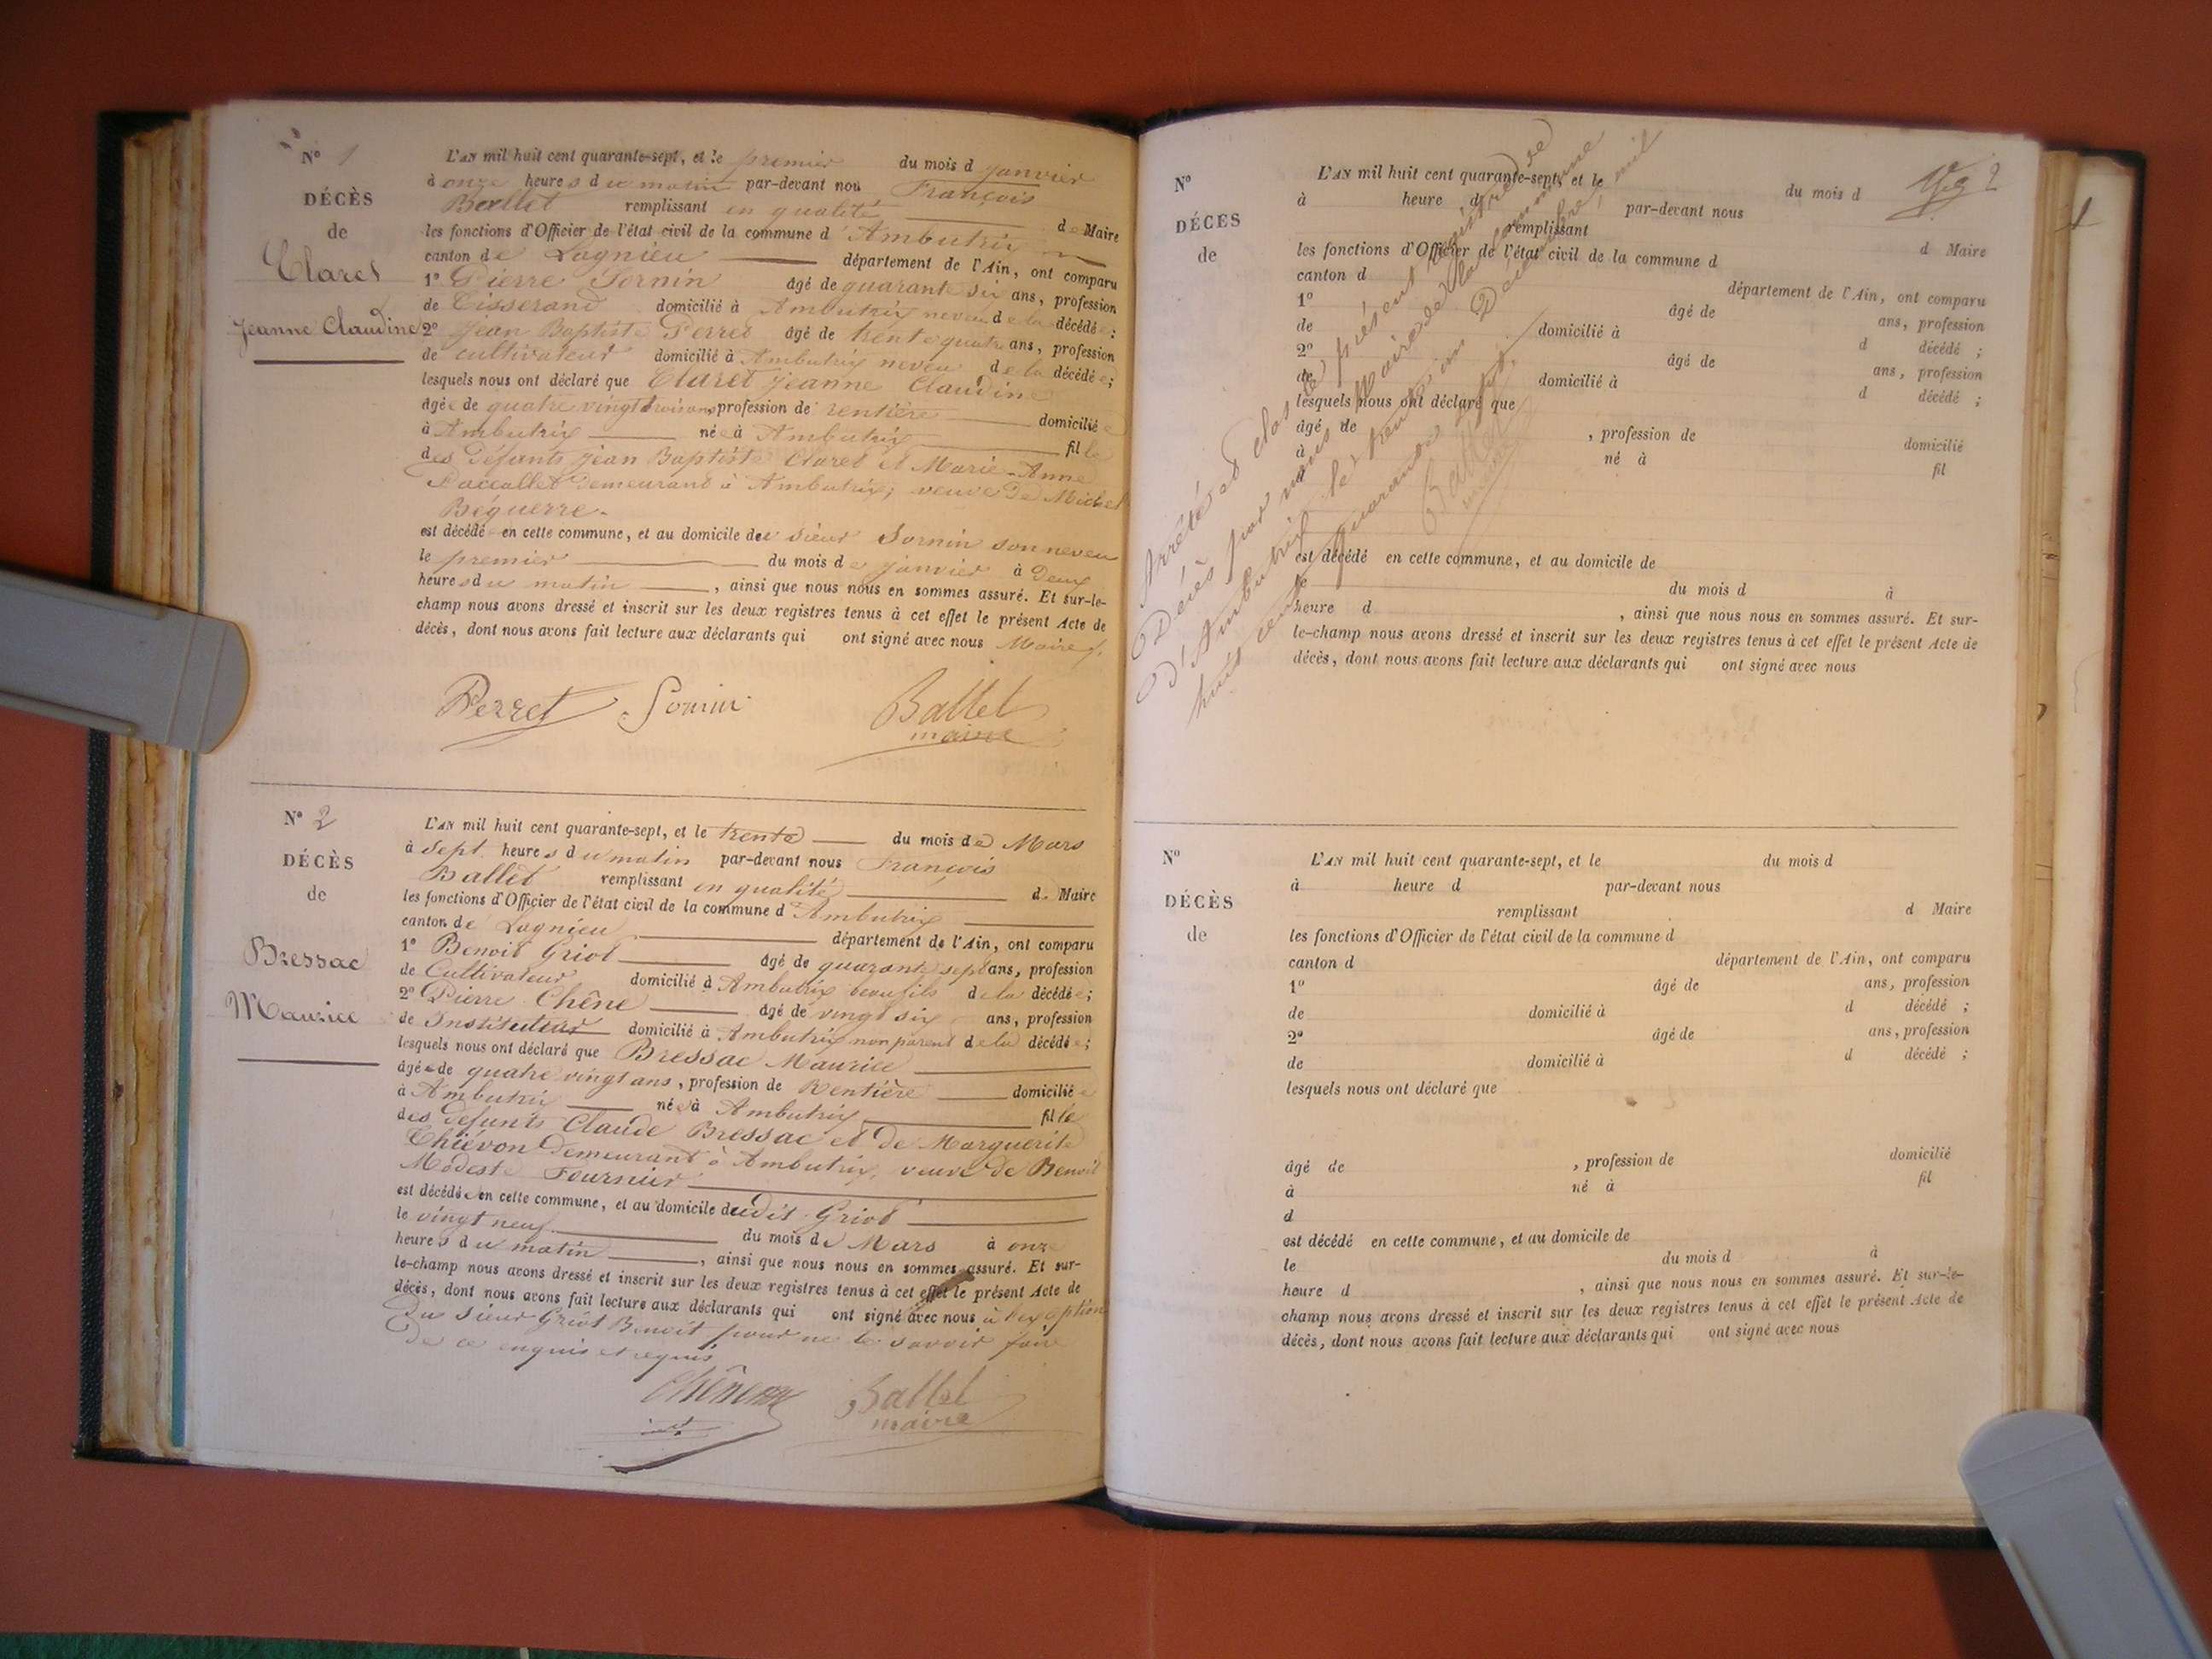 N° 1
DÉCÈS
de
Claret
Jeanne Claudine
L'AN mil huit cent quarante-sept, et le premier du mois d janvier
à onze heures du matin par-devant nou François
Ballet remplissant en qualité de Maire
les fonctions d'Officier de l'état civil de la commune d'Ambutrix
canton de Lagnieu département de l'Ain, ont comparu
1° Pierre Sornin âgé de quarante six ans, profession
de Tisserand domicilié à Ambutrix neveu de la décédée;
2° Jean Baptiste Perret âgé de trente quatre ans, profession
de cultivateur domicilié à Ambutrix neveu de la décédée;
lesquels nous ont déclaré que Claret Jeanne Claudine
âgée de quatre vingt trois ans, profession de rentière domiciliée
à Ambutrix née à Ambutrix fille
des défunts Jean Baptiste Claret et Marie-Anne
demeurant à Ambutrix; veuve de Michel
Béguerre.
est décédée en cette commune, et au domicile du sieur Sornin son neveu
le premier du mois de janvier à deux
heures du matin, ainsi que nous nous en sommes assuré. Et sur-le-
champ nous avons dressé et inscrit sur les deux registres tenus à cet effet le présent Acte de
décès, dont nous avons fait lecture aux déclarants qui ont signé avec nous Maire
Perret Sornin Ballet
maire
N° 2
DÉCÈS
de
Bressac
Maurice
L'AN mil huit cent quarante-sept, et le trente du mois de Mars
à sept heures du matin par-devant nous François
Ballet remplissant en qualité de Maire
les fonctions d'Officier de l'état civil de la commune d'Ambutrix
canton de Lagnieu département de l'Ain, ont comparu
1° Benoit Griot âgé de quarante sept ans, profession
de Cultivateur domicilié à Ambutrix beau fils de la décédée;
2° Pierre Chêne âgé de vingt six ans, profession
de Instituteur domicilié à Ambutrix non parent de la décédée;
lesquels nous ont déclaré que Bressac Maurice
âgée de quatre vingt ans, profession de Rentière domiciliée
à Ambutrix née à Ambutrix fille
des défunts Claude Bressac et de Marguerite
Chiévon demeurant à Ambutrix, veuve de Benoit
Modeste Fournier
est décédée en cette commune, et au domicile dudit Griot
le vingt neuf du mois de Mars à onze
heures du matin, ainsi que nous nous en sommes assuré. Et sur-
le-champ nous avons dressé et inscrit sur les deux registres tenus à cet effet le présent Acte de
décès, dont nous avons fait lecture aux déclarants qui ont signé avec nous à l'exception
du sieur Griot Benoit pour ne le savoir faire
de ce enquis et requis
Chêne Ballet
maire
2
N°
DÉCÈS
de
L'AN mil huit cent quarante-sept, et le du mois d
à heure d par-devant nous
remplissant d Maire
les fonctions d'Officier de l'état civil de la commune d
canton d département de l'Ain, ont comparu
1° âgé de ans, profession
de domicilié à d décédé ;
2° âgé de ans, profession
de domicilié à d décédé ;
lesquels nous ont déclaré que
âgé de , profession de domicilié
à né à fil
d
est décédé en cette commune, et au domicile de
le du mois d à
heure d , ainsi que nous nous en sommes assuré. Et sur-
le-champ nous avons dressé et inscrit sur les deux registres tenus à cet effet le présent Acte de
décès, dont nous avons fait lecture aux déclarants qui ont signé avec nous
Arrêté et clos le présent registre de
Décès par nous Maire de la commune
d'Ambutrix le trente un Décembre mil
huit cent quarante sept.
Ballet
maire
N°
DÉCÈS
de
L'AN mil huit cent quarante-sept, et le du mois d
à heure d par-devant nous
remplissant d Maire
les fonctions d'Officier de l'état civil de la commune d
canton d département de l'Ain, ont comparu
1° âgé de ans, profession
de domicilié à d décédé ;
2° âgé de ans, profession
de domicilié à d décédé ;
lesquels nous ont déclaré que
âgé de , profession de domicilié
à né à fil
d
est décédé en cette commune, et au domicile de
le du mois d à
heure d , ainsi que nous nous en sommes assuré. Et sur-le-
champ nous avons dressé et inscrit sur les deux registres tenus à cet effet le présent Acte de
décès, dont nous avons fait lecture aux déclarants qui ont signé avec nous